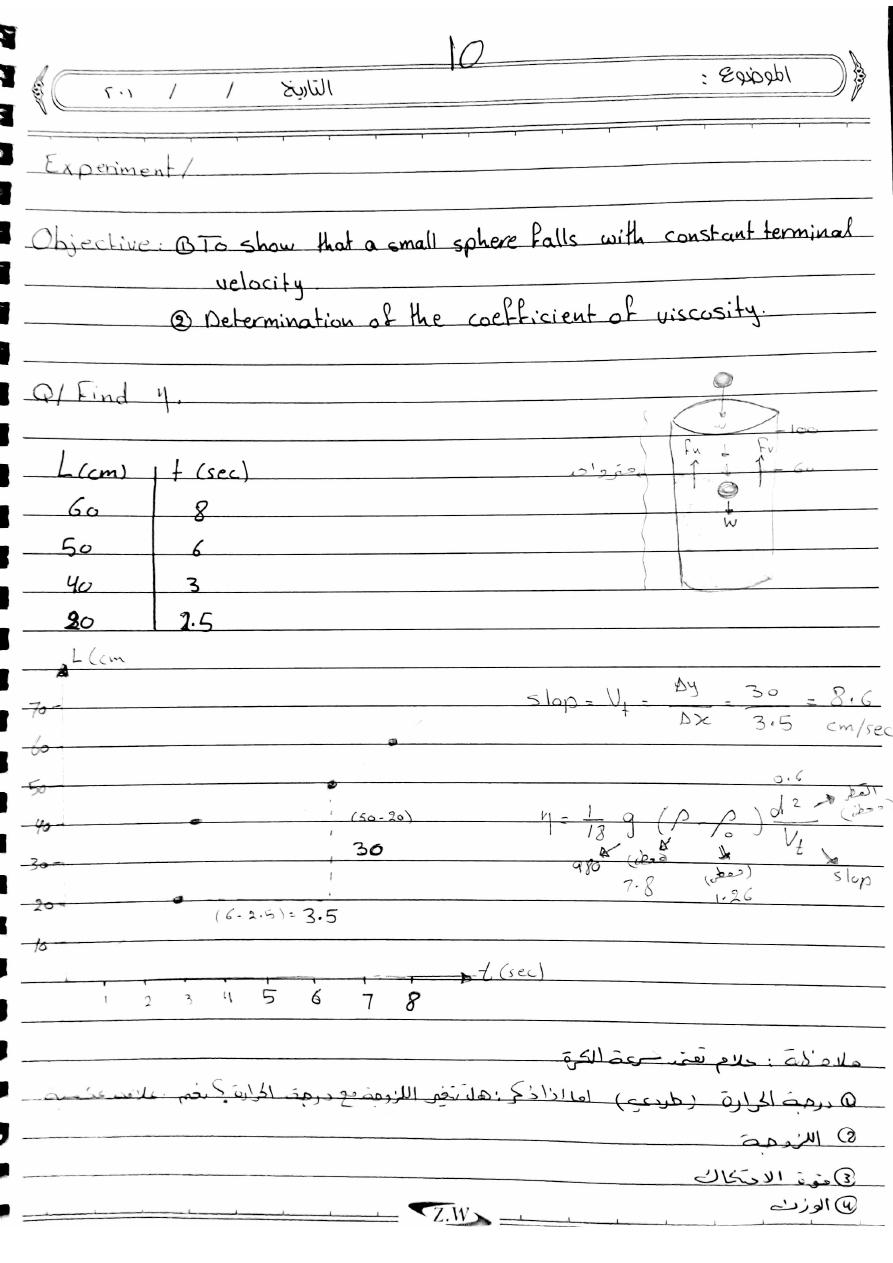 10
الموضوع :
التاريخ / / ٢٠١
Experiment/
Objective: ① To show that a small sphere falls with constant terminal
velocity
② Determination of the coefficient of viscosity.
Q/ Find η.
100
60
Fu Fv
W
L(cm) t (sec)
60 8
50 6
40 3
20 2.5
L (cm
70
60
50
40
30
20
10
(50-20)
30
(6-2.5)= 3.5
1 2 3 4 5 6 7 8
t (sec)
slop = Vt = Δy/Δx = 30/3.5 = 8.6 cm/sec
0.6
η = 1/18 g (ρ - ρ₀) d²/Vt
القطر
980
7.8
1.26
slop
ملاحظة : علام تعتمد سرعة الكرة
① درجة الحرارة (طردي) اما اذا ذكر : هل تتغير اللزوجة مع درجة الحرارة ؟ نعم علاقة عكسية
② اللزوجة
③ قوة الاحتكاك
④ الوزن
Z.W